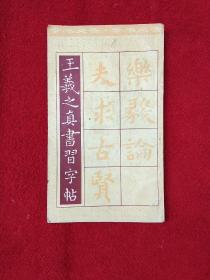 王羲之真書習字帖
樂毅論
夫求古賢